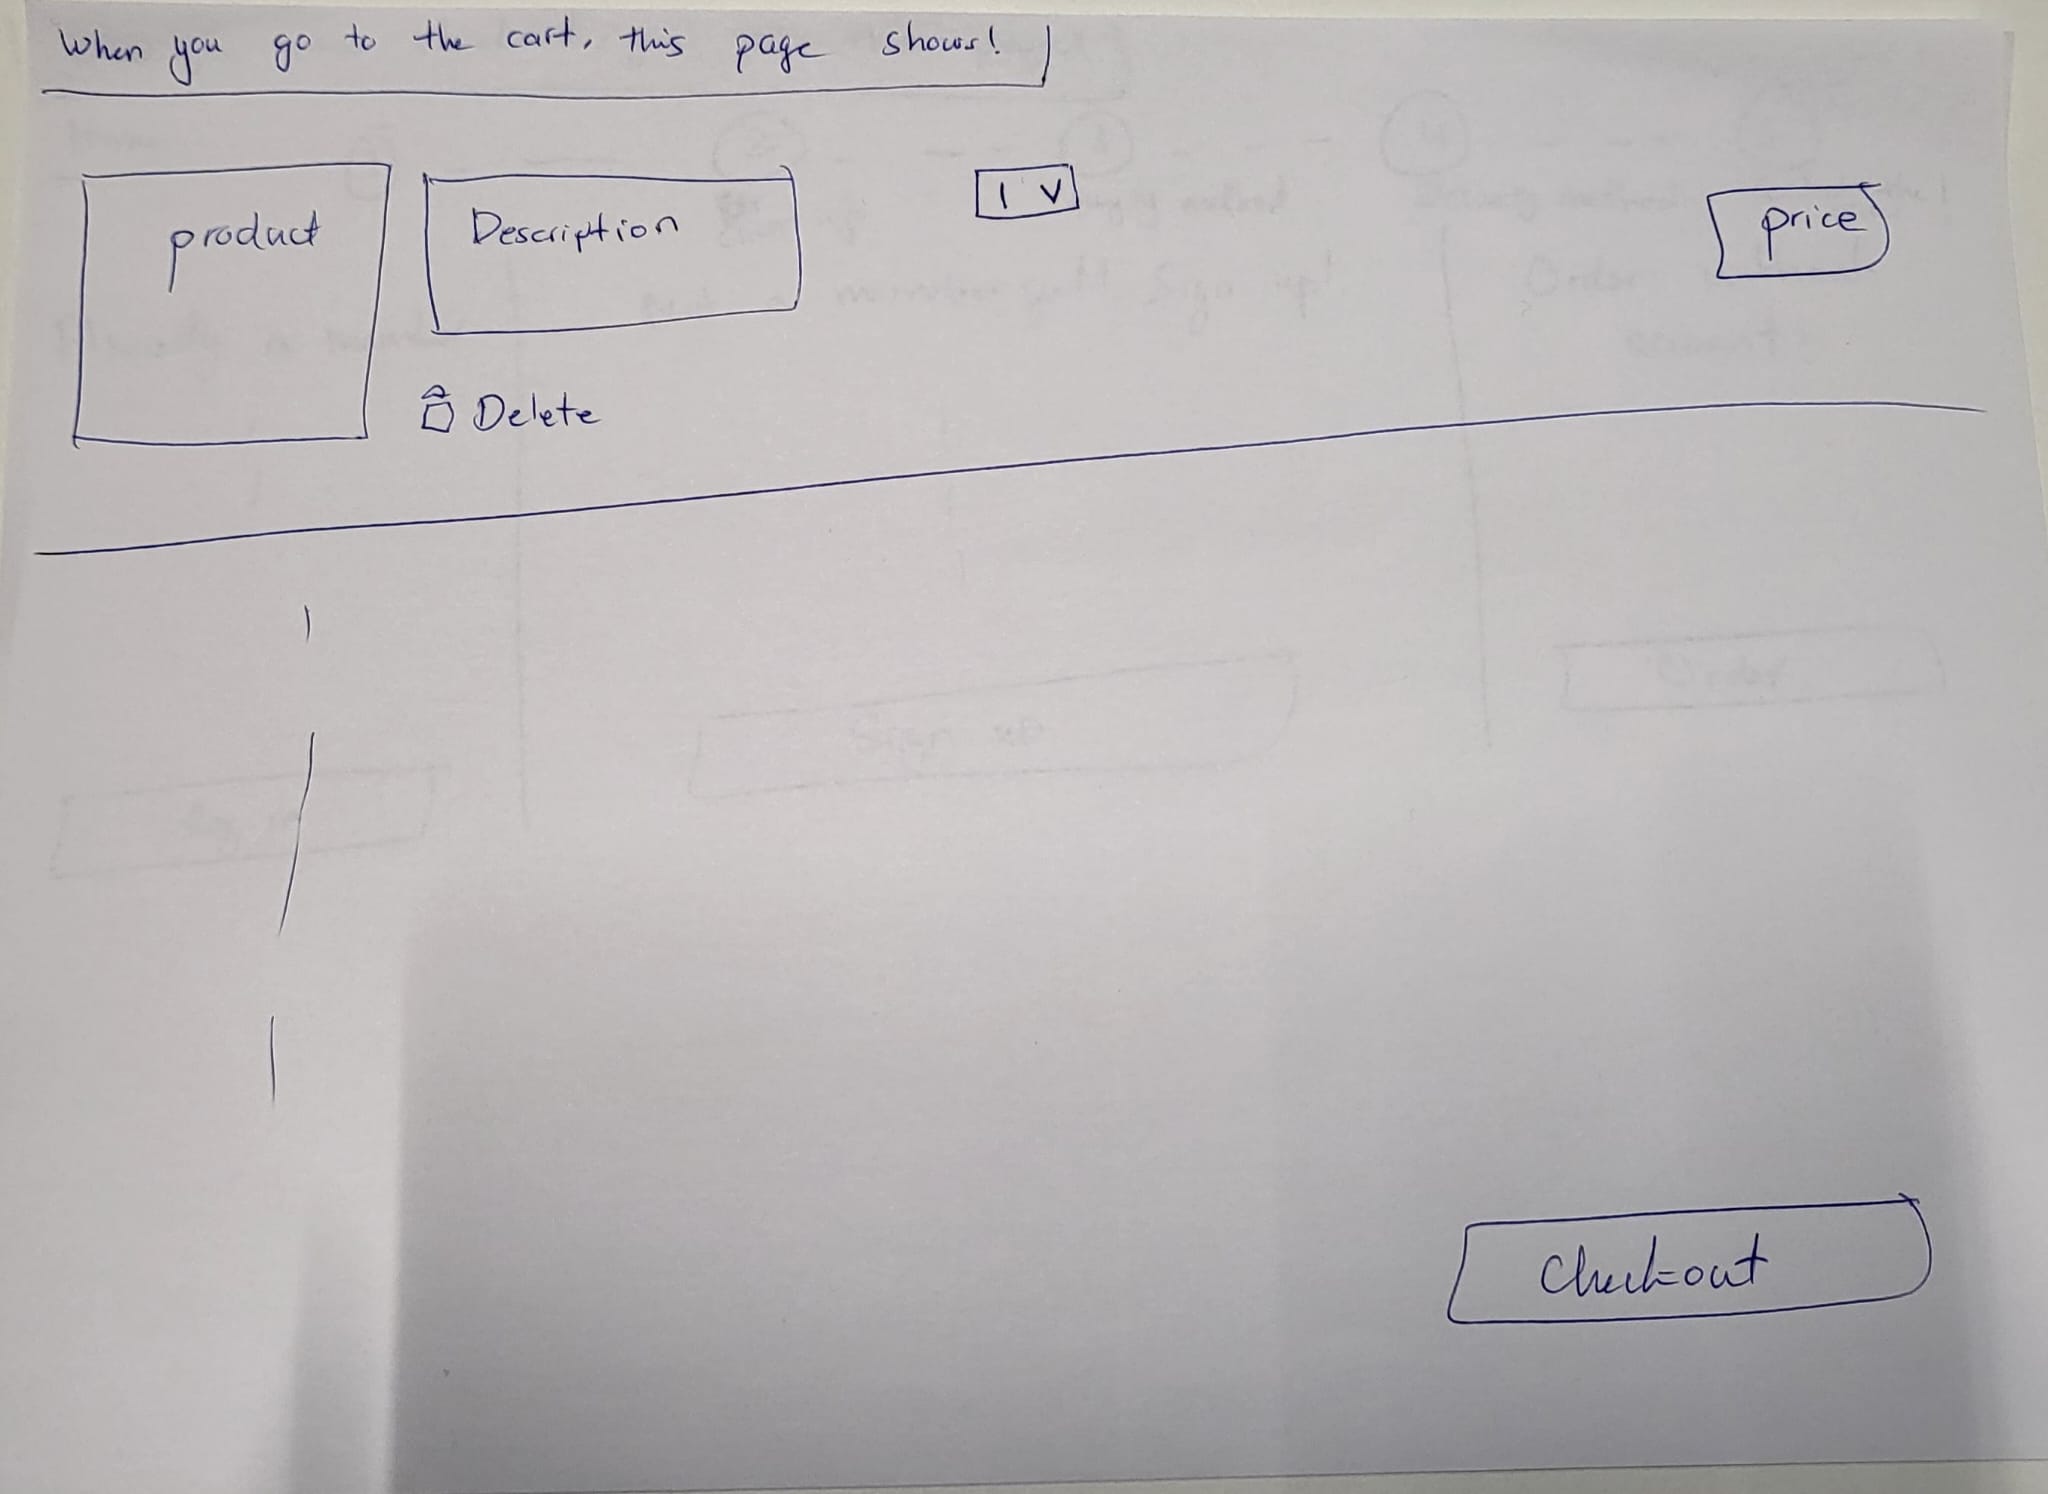 When you go to the cart, this page shows!
product
Description
1 V
price
Delete
Checkout
Sign up
Order